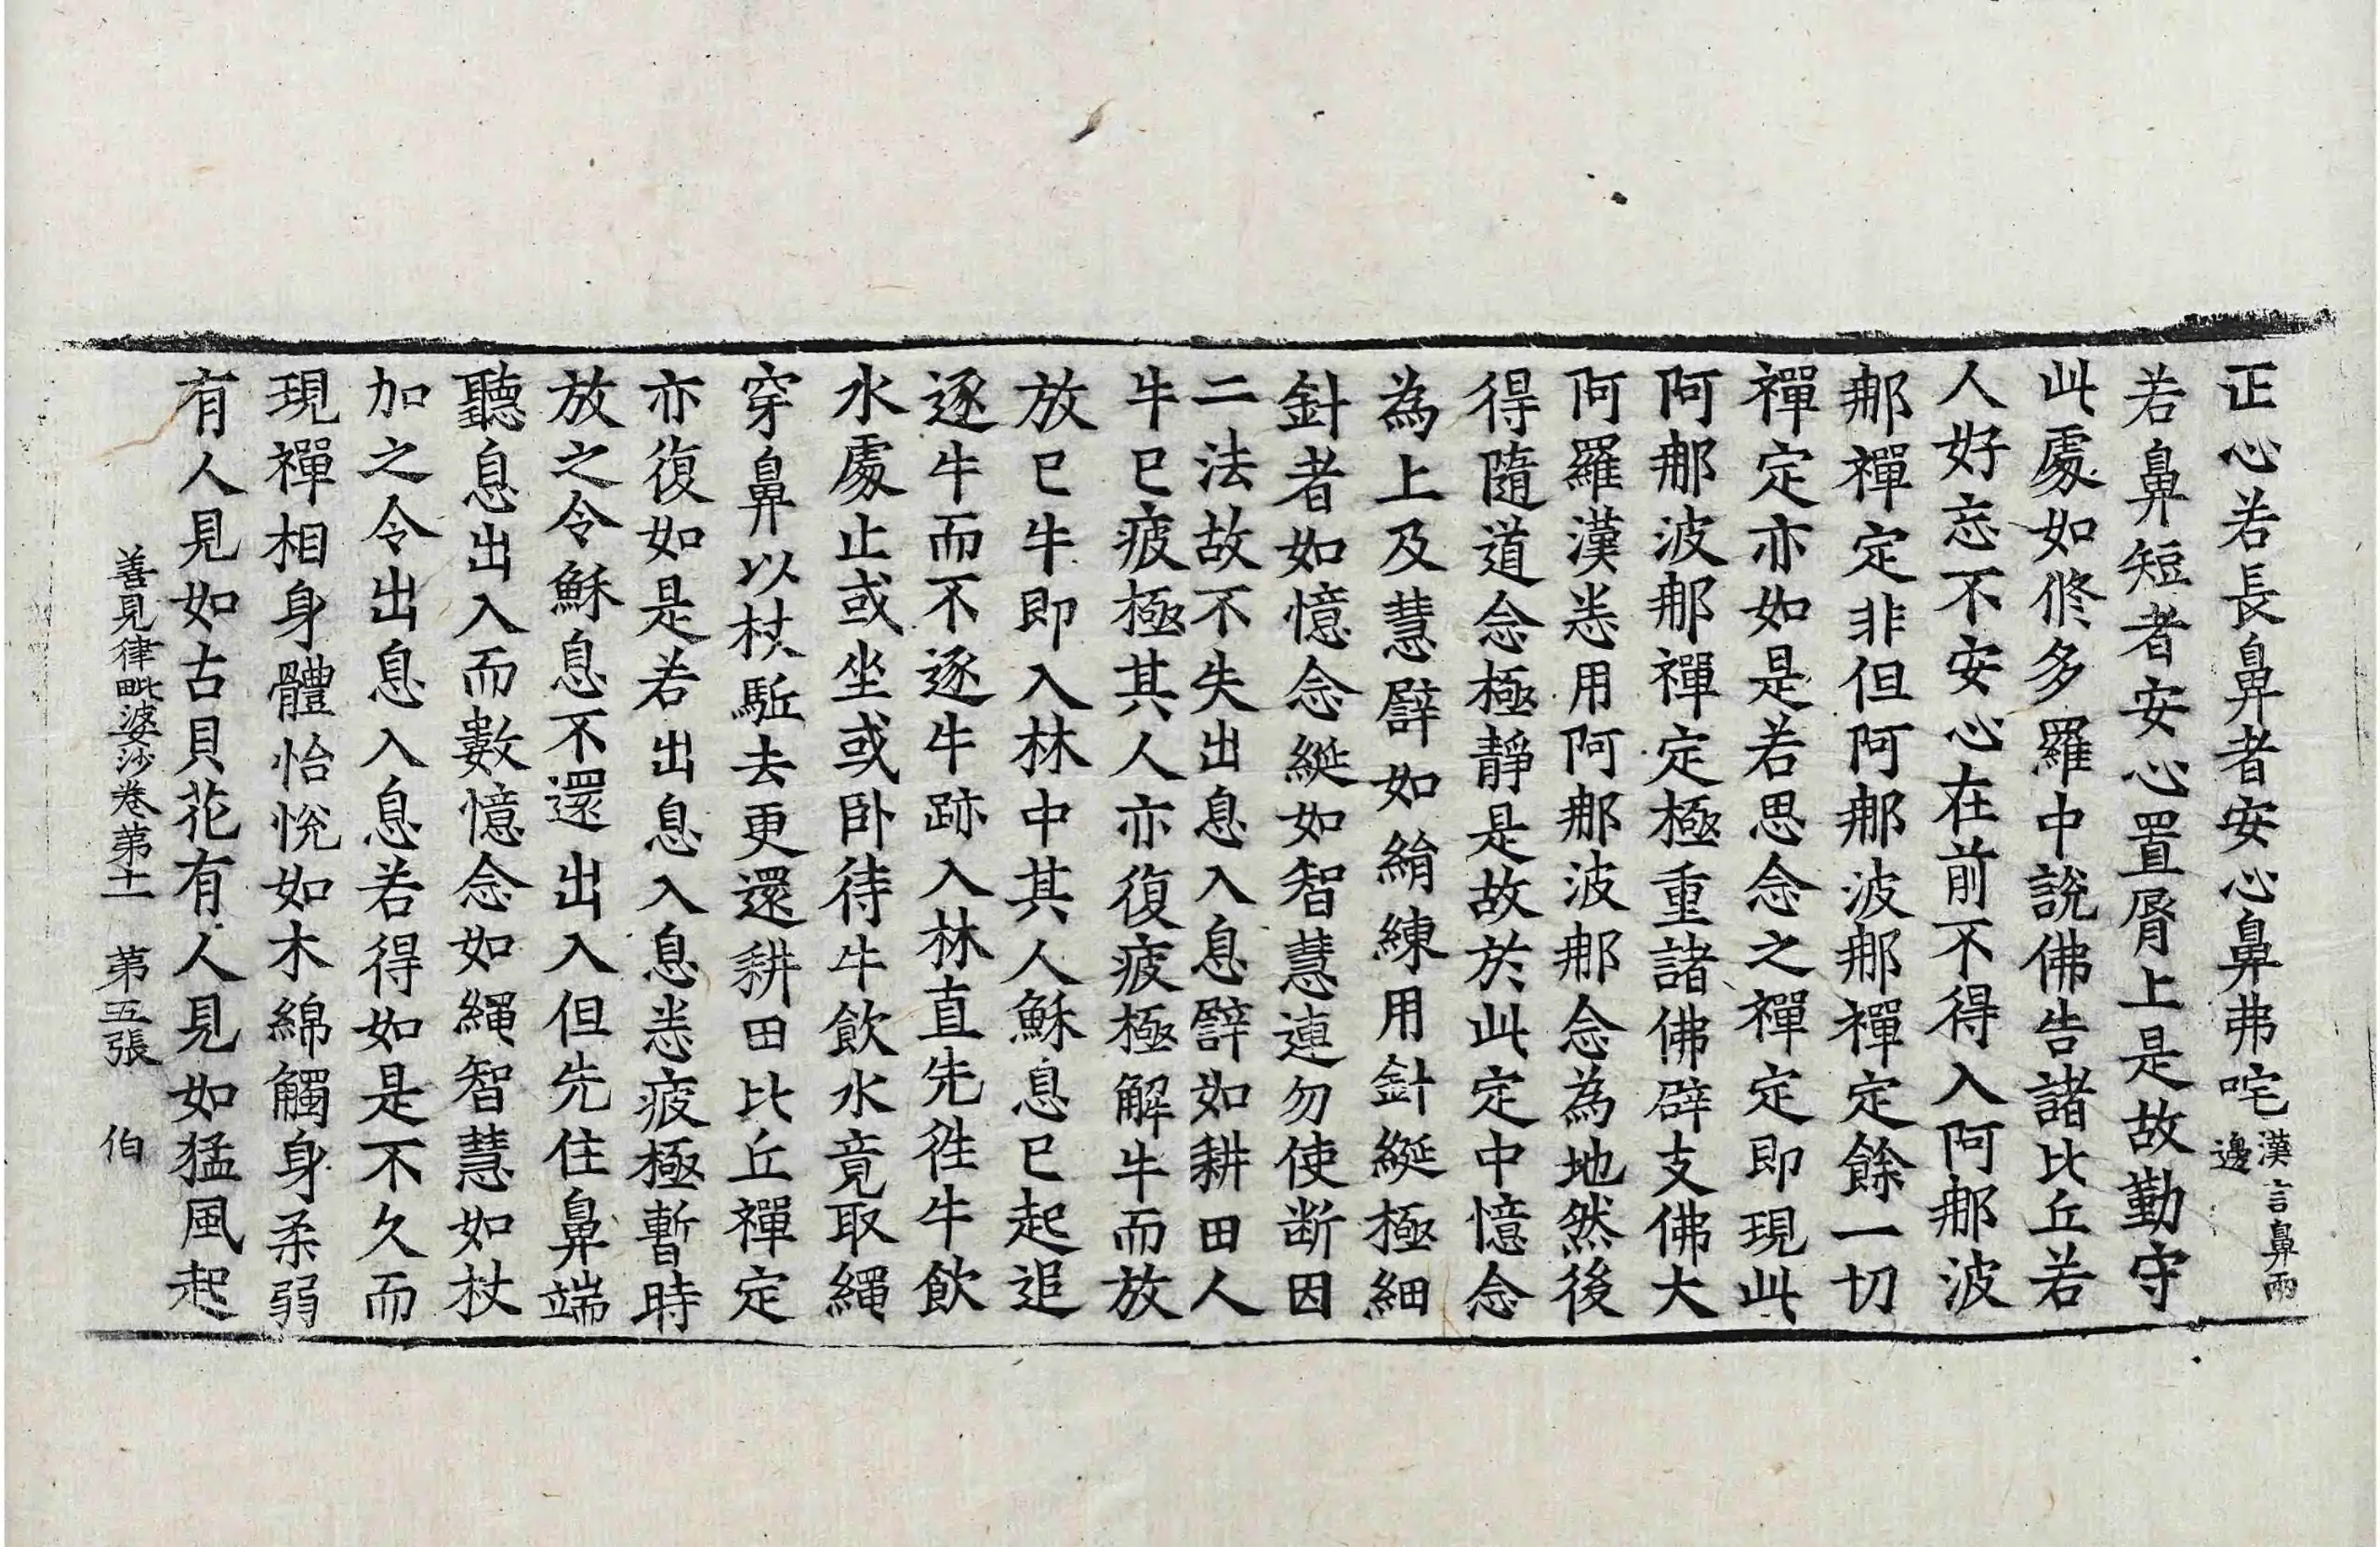 正心若長鼻者安心鼻弗咤漢言鼻兩邊
若鼻短者安心置脣上是故勤守
此處如修多羅中說佛告諸比丘若
人好忘不安心在前不得入阿那波
那禪定非但阿那波那禪定餘一切
禪定亦如是若思念之禪定即現此
阿那波那禪定極重諸佛辟支佛大
阿羅漢悉用阿那波那念為地然後
得隨道念極靜是故於此定中憶念
為上及慧譬如絹練用針綖極細
針者如憶念綖如智慧連勿使断因
二法故不失出息入息譬如耕田人
牛已疲極其人亦復疲極解牛而放
放已牛即入林中其人穌息已起追
逐牛而不逐牛跡入林直先徃牛飲
水處止或坐或卧待牛飲水竟取繩
穿鼻以杖駈去更還耕田比丘禪定
亦復如是若出息入息悉疲極暫時
放之令穌息不還出入但先住鼻端
聽息出入而數憶念如繩智慧如杖
加之令出息入息若得如是不久而
現禪相身體怡悅如木綿觸身柔弱
有人見如古貝花有人見如猛風起
善見律毗婆沙卷第十一 第五張 伯